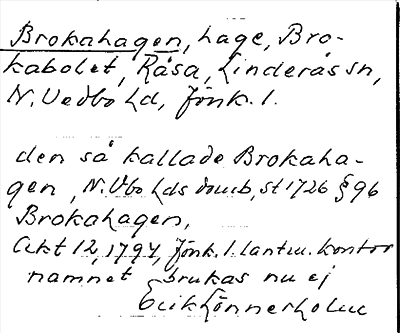 Brokahagen, hage, Bro-
kabolet, Råsa, Linderås sn,
N. Vedbo hd, Jönk. l.
den så kallade Brokaha-
gen, N. Vbo hds domb, st 1726 § 96
Brokahagen,
Akt 12, 1794, Jönk. l. lantm. kontor
namnet brukas nu ej
Erik Lönnerholm